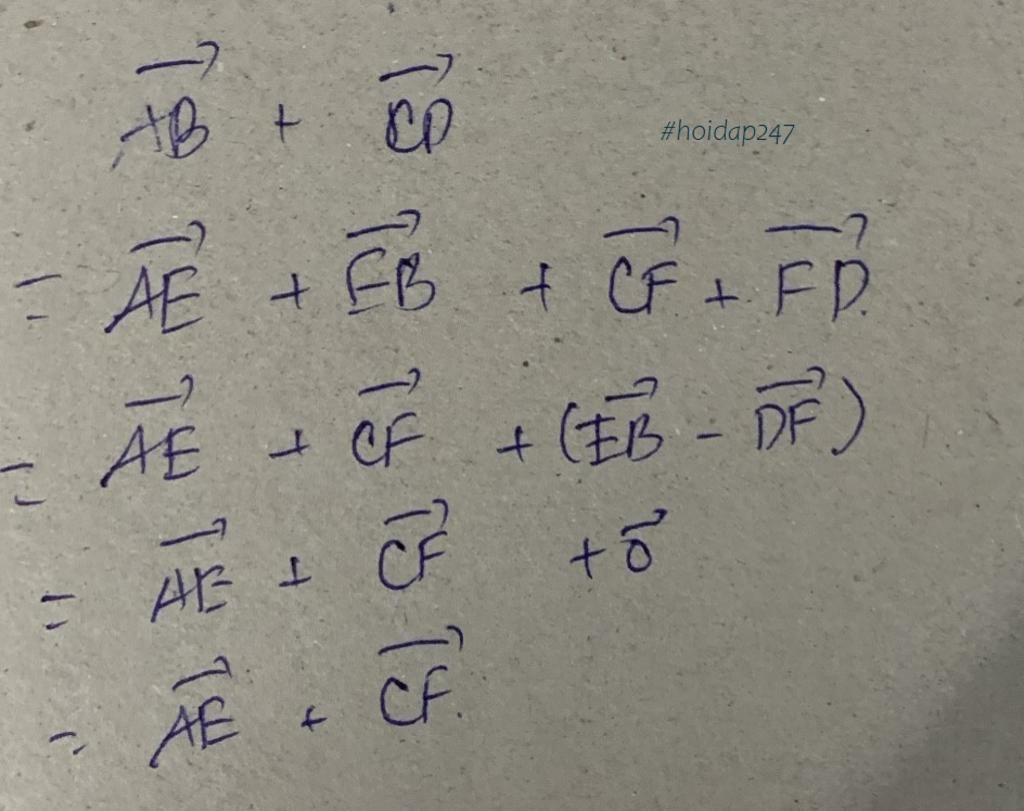 $\overrightarrow{AB} + \overrightarrow{CD}$
#hoidap247
$= \overrightarrow{AE} + \overrightarrow{EB} + \overrightarrow{CF} + \overrightarrow{FD}.$
$= \overrightarrow{AE} + \overrightarrow{CF} + (\overrightarrow{EB} - \overrightarrow{DF})$
$= \overrightarrow{AE} + \overrightarrow{CF} + \vec{0}$
$= \overrightarrow{AE} + \overrightarrow{CF}.$